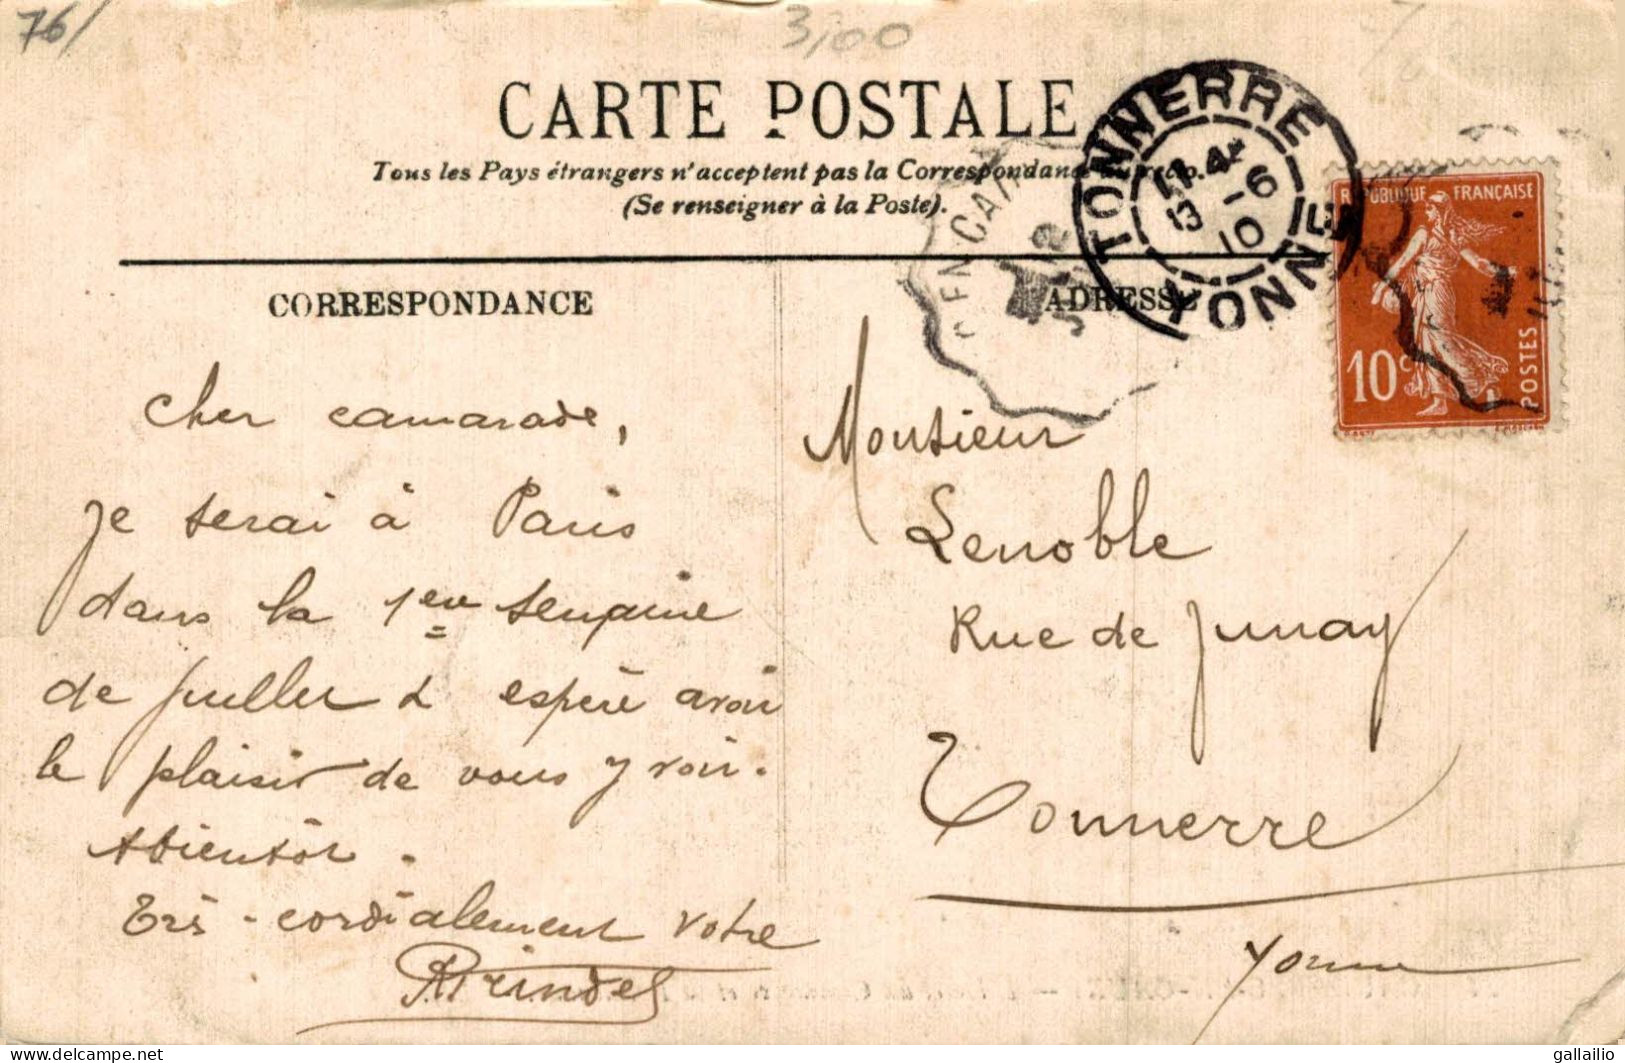 76/
3,00
CARTE POSTALE
Tous les Pays étrangers n'acceptent pas la Correspondance au recto.
(Se renseigner à la Poste).
TONNERRE
13 - 6
10
YONNE
RÉPUBLIQUE FRANÇAISE
10c
POSTES
CORRESPONDANCE
ADRESSE
Cher camarade,
Je serai à Paris
dans la 1ère semaine
de juillet & espère avoir
le plaisir de vous y voir.
A bientôt.
Très-cordialement votre
Monsieur
Lenoble
Rue de Junay
Tonnerre
Yonne
delcampe.net
gallailio